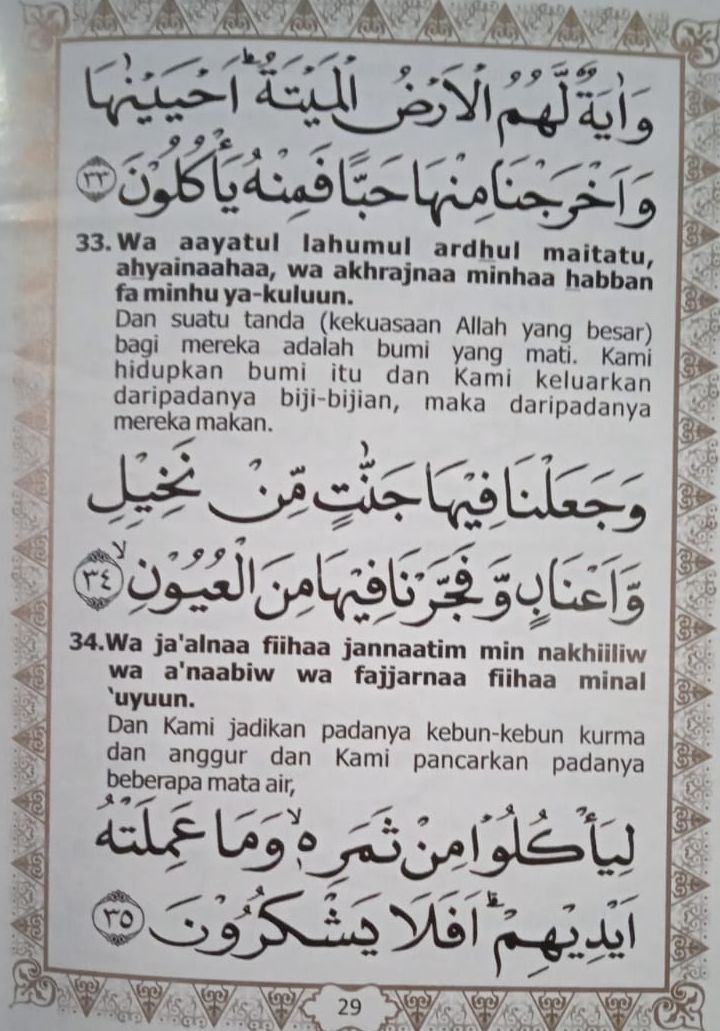 وَاٰيَةٌ لَّهُمُ الْاَرْضُ الْمَيْتَةُ ۖ اَحْيَيْنٰهَا
وَاَخْرَجْنَا مِنْهَا حَبًّا فَمِنْهُ يَأْكُلُوْنَ ٣٣
33. Wa aayatul lahumul ardhul maitatu,
ahyainaahaa, wa akhrajnaa minhaa habban
fa minhu ya-kuluun.
Dan suatu tanda (kekuasaan Allah yang besar)
bagi mereka adalah bumi yang mati. Kami
hidupkan bumi itu dan Kami keluarkan
daripadanya biji-bijian, maka daripadanya
mereka makan.
وَجَعَلْنَا فِيْهَا جَنّٰتٍ مِّنْ نَّخِيْلٍ
وَّاَعْنَابٍ وَّفَجَّرْنَا فِيْهَا مِنَ الْعُيُوْنِ ۙ ٣٤
34.Wa ja'alnaa fiihaa jannaatim min nakhiiliw
wa a'naabiw wa fajjarnaa fiihaa minal
'uyuun.
Dan Kami jadikan padanya kebun-kebun kurma
dan anggur dan Kami pancarkan padanya
beberapa mata air,
لِيَأْكُلُوْا مِنْ ثَمَرِهٖ ۙ وَمَا عَمِلَتْهُ
اَيْدِيْهِمْ ۗ اَفَلَا يَشْكُرُوْنَ ٣٥
29